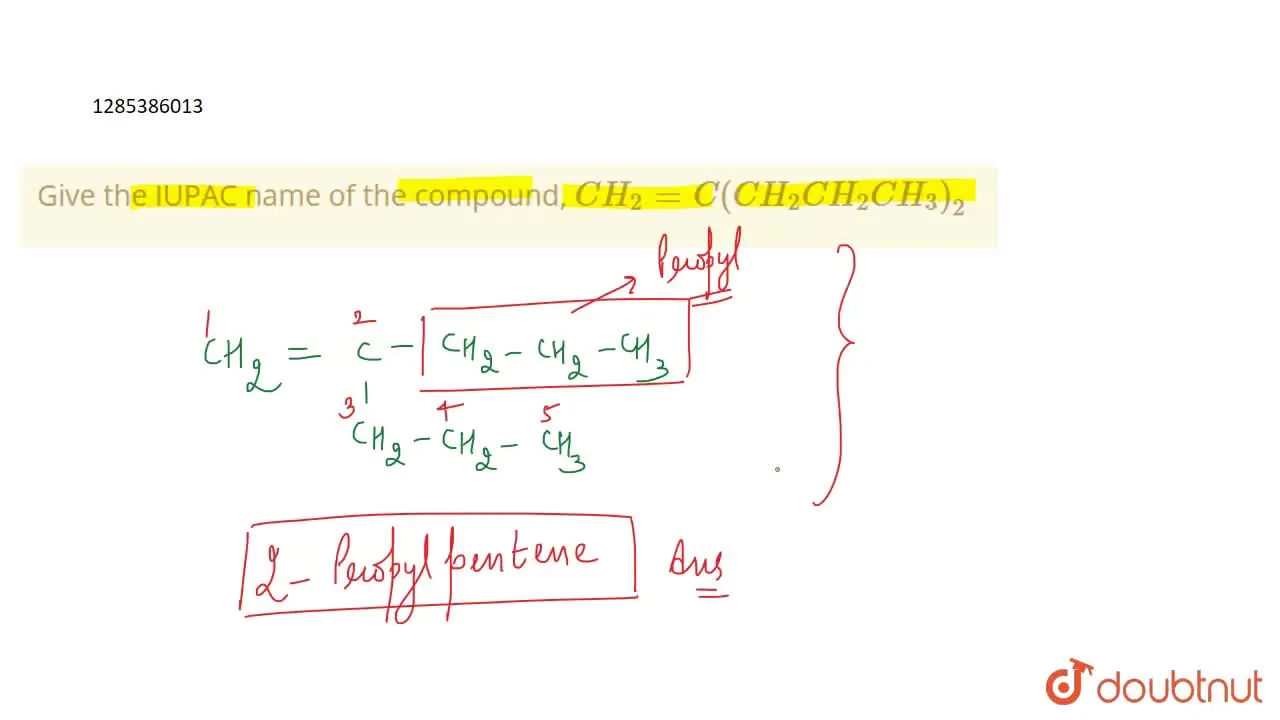 1285386013
Give the IUPAC name of the compound, CH₂ = C(CH₂CH₂CH₃)₂
Propyl
1 2
CH₂ = C - CH₂ - CH₂ - CH₃
3 4 5
CH₂ - CH₂ - CH₃
2 - Propyl pentene Ans
doubtnut